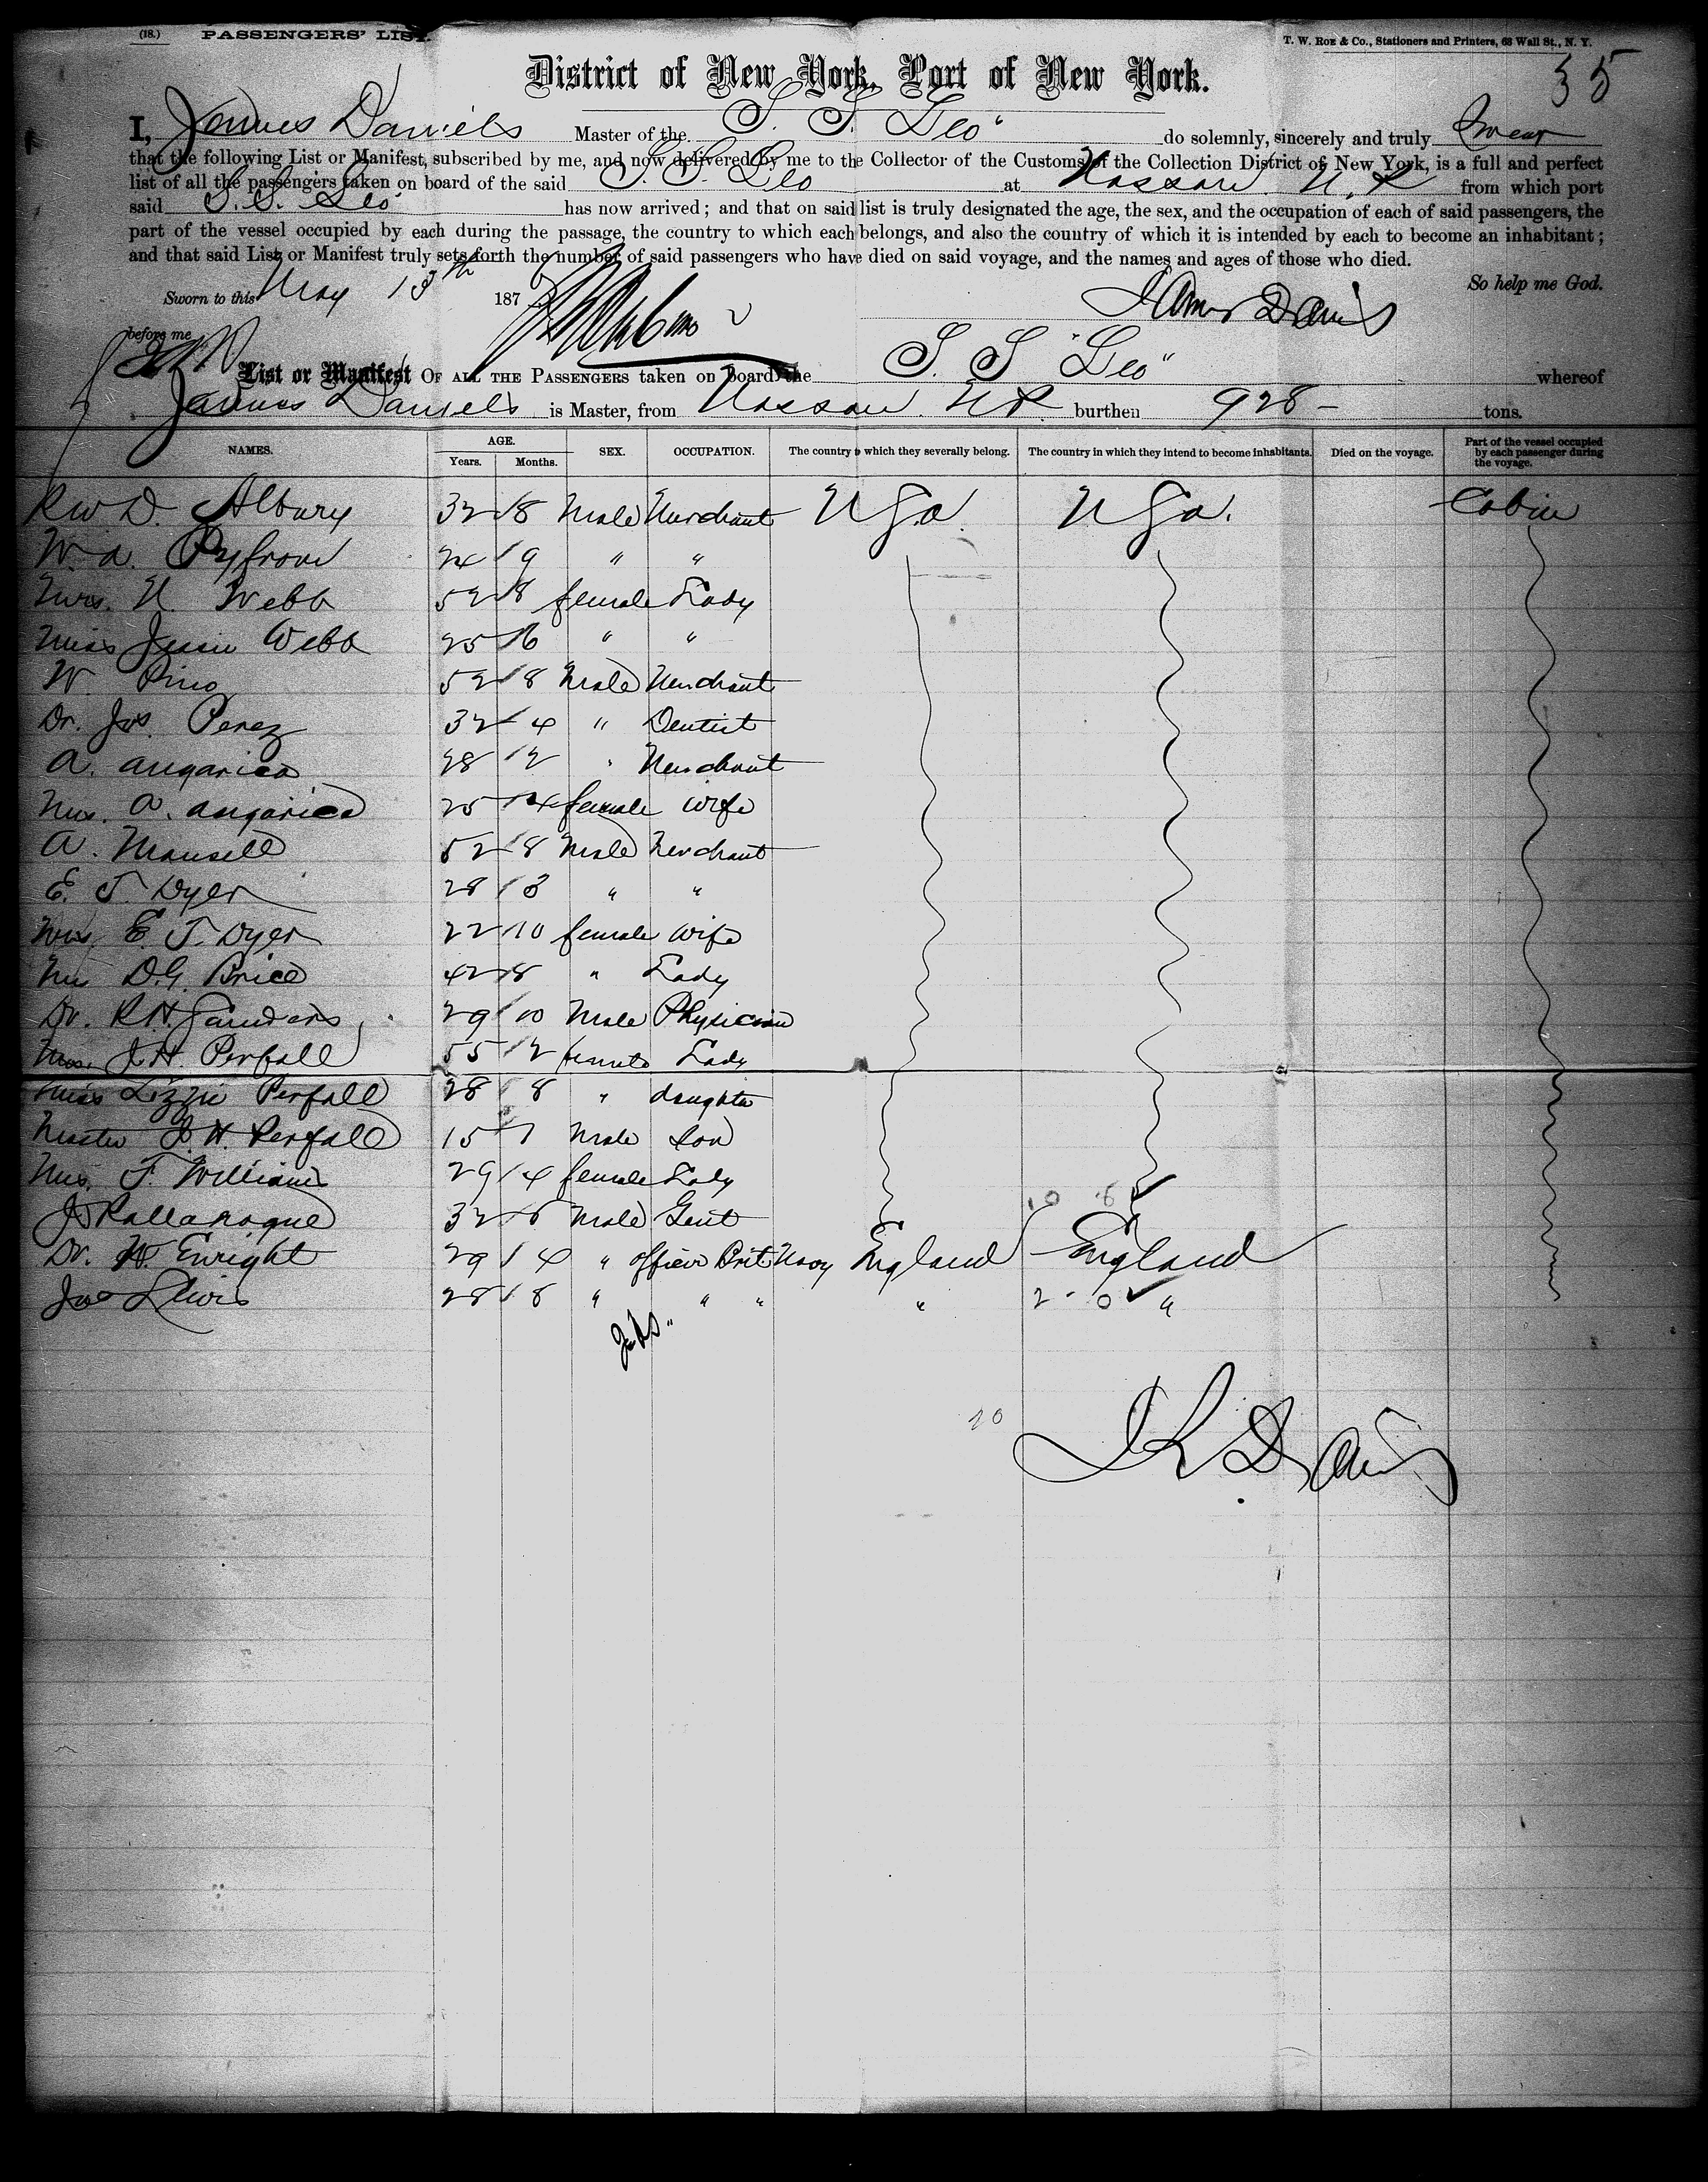 (18.) PASSENGERS' LIST.
T. W. ROE & CO., Stationers and Printers, 68 Wall St., N. Y.
35
District of New York, Port of New York.
I, James Daniels Master of the S. S. "Leo" do solemnly, sincerely and truly Swear
that the following List or Manifest, subscribed by me, and now delivered by me to the Collector of the Customs of the Collection District of New York, is a full and perfect
list of all the passengers taken on board of the said S. S. Leo at Nassau N. P. from which port
said S. S. Leo has now arrived; and that on said list is truly designated the age, the sex, and the occupation of each of said passengers, the
part of the vessel occupied by each during the passage, the country to which each belongs, and also the country of which it is intended by each to become an inhabitant;
and that said List or Manifest truly sets forth the number of said passengers who have died on said voyage, and the names and ages of those who died.
So help me God.
Sworn to this May 13th 187
before me
List or Manifest OF ALL THE PASSENGERS taken on board the S. S "Leo" whereof
James Daniels is Master, from Nassau N.P. burthen 928 - tons.
NAMES. AGE. Years. Months. SEX. OCCUPATION. The country to which they severally belong. The country in which they intend to become inhabitants. Died on the voyage. Part of the vessel occupied by each passenger during the voyage.
D. Albury 32 / 8 Male Merchant U S a. U S a. Cabin
W. a. Pyfrom 24 / 9 " "
Mrs. N. Webb 52 / 8 female Lady
Miss Jessie Webb 25 / 6 " "
W. Pino 52 / 8 Male Merchant
Dr. Jos. Perez 32 / 4 " Dentist
A. Angarica 28 / 2 " Merchant
Mrs. A. Angarica 25 / 4 female wife
A. Mansell 52 / 8 Male Merchant
E. J. Dyer 28 / 3 " "
Mrs. E. J. Dyer 22 / 10 female wife
Mrs D.G. Brice 42 / 8 " Lady
Dr. R.H. Saunders 29 / 10 Male Physician
Mrs. J.H. Perfall 55 / 2 female Lady
Miss Lizzie Perfall 28 / 8 " daughter
Master J. H. Perfall 15 / 7 Male son
Mrs. F. Williams 29 / 4 female Lady
32 / 6 Male Gent
Dr. W. Enright 29 / 4 " officer Brit Navy England England
Jas Lewis 28 / 8 " " " " 2 - 0 "
20